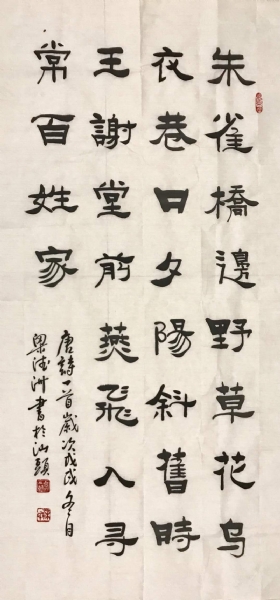 朱雀橋邊野草花乌
衣巷口夕陽斜舊時
王謝堂前燕飛入寻
常百姓家
唐詩一首歲次戊戌冬月
梁洲書於汕頭